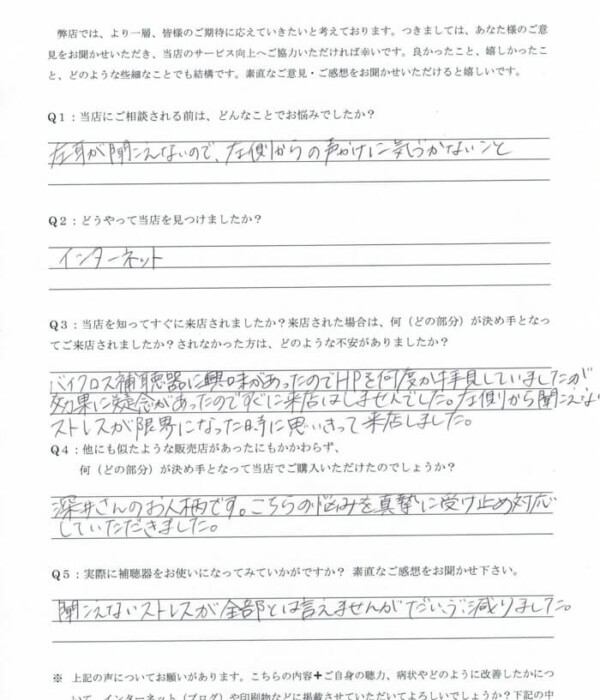 弊店では、より一層、皆様のご期待に応えていきたいと考えております。つきましては、あなた様のご意
見をお聞かせいただき、当店のサービス向上へご協力いただければ幸いです。良かったこと、嬉しかったこ
と、どのような些細なことでも結構です。素直なご意見・ご感想をお聞かせいただけると嬉しいです。
Q1：当店にご相談される前は、どんなことでお悩みでしたか？
左耳が聞こえないので、左側からの声かけに気づかないこと
Q2：どうやって当店を見つけましたか？
インターネット
Q3：当店を知ってすぐに来店されましたか？来店された場合は、何（どの部分）が決め手となっ
てご来店されましたか？されなかった方は、どのような不安がありましたか？
バイクロス補聴器に興味があったのでHPを何度か拝見していましたが
効果に疑念があったのですぐに来店はしませんでした。左側から聞こえない
ストレスが限界になった時に思いきって来店しました。
Q4：他にも似たような販売店があったにもかかわらず、
何（どの部分）が決め手となって当店でご購入いただけたのでしょうか？
深井さんのお人柄です。こちらの悩みを真摯に受け止め対応
していただきました。
Q5：実際に補聴器をお使いになってみていかがですか？ 素直なご感想をお聞かせ下さい。
聞こえないストレスが全部とは言えませんがだいぶ減りました。
※ 上記の声についてお願いがあります。こちらの内容＋ご自身の聴力、病状やどのように改善したかにつ
いて、インターネット（ブログ）や印刷物などに掲載させていただいてよろしいでしょうか？下記の中